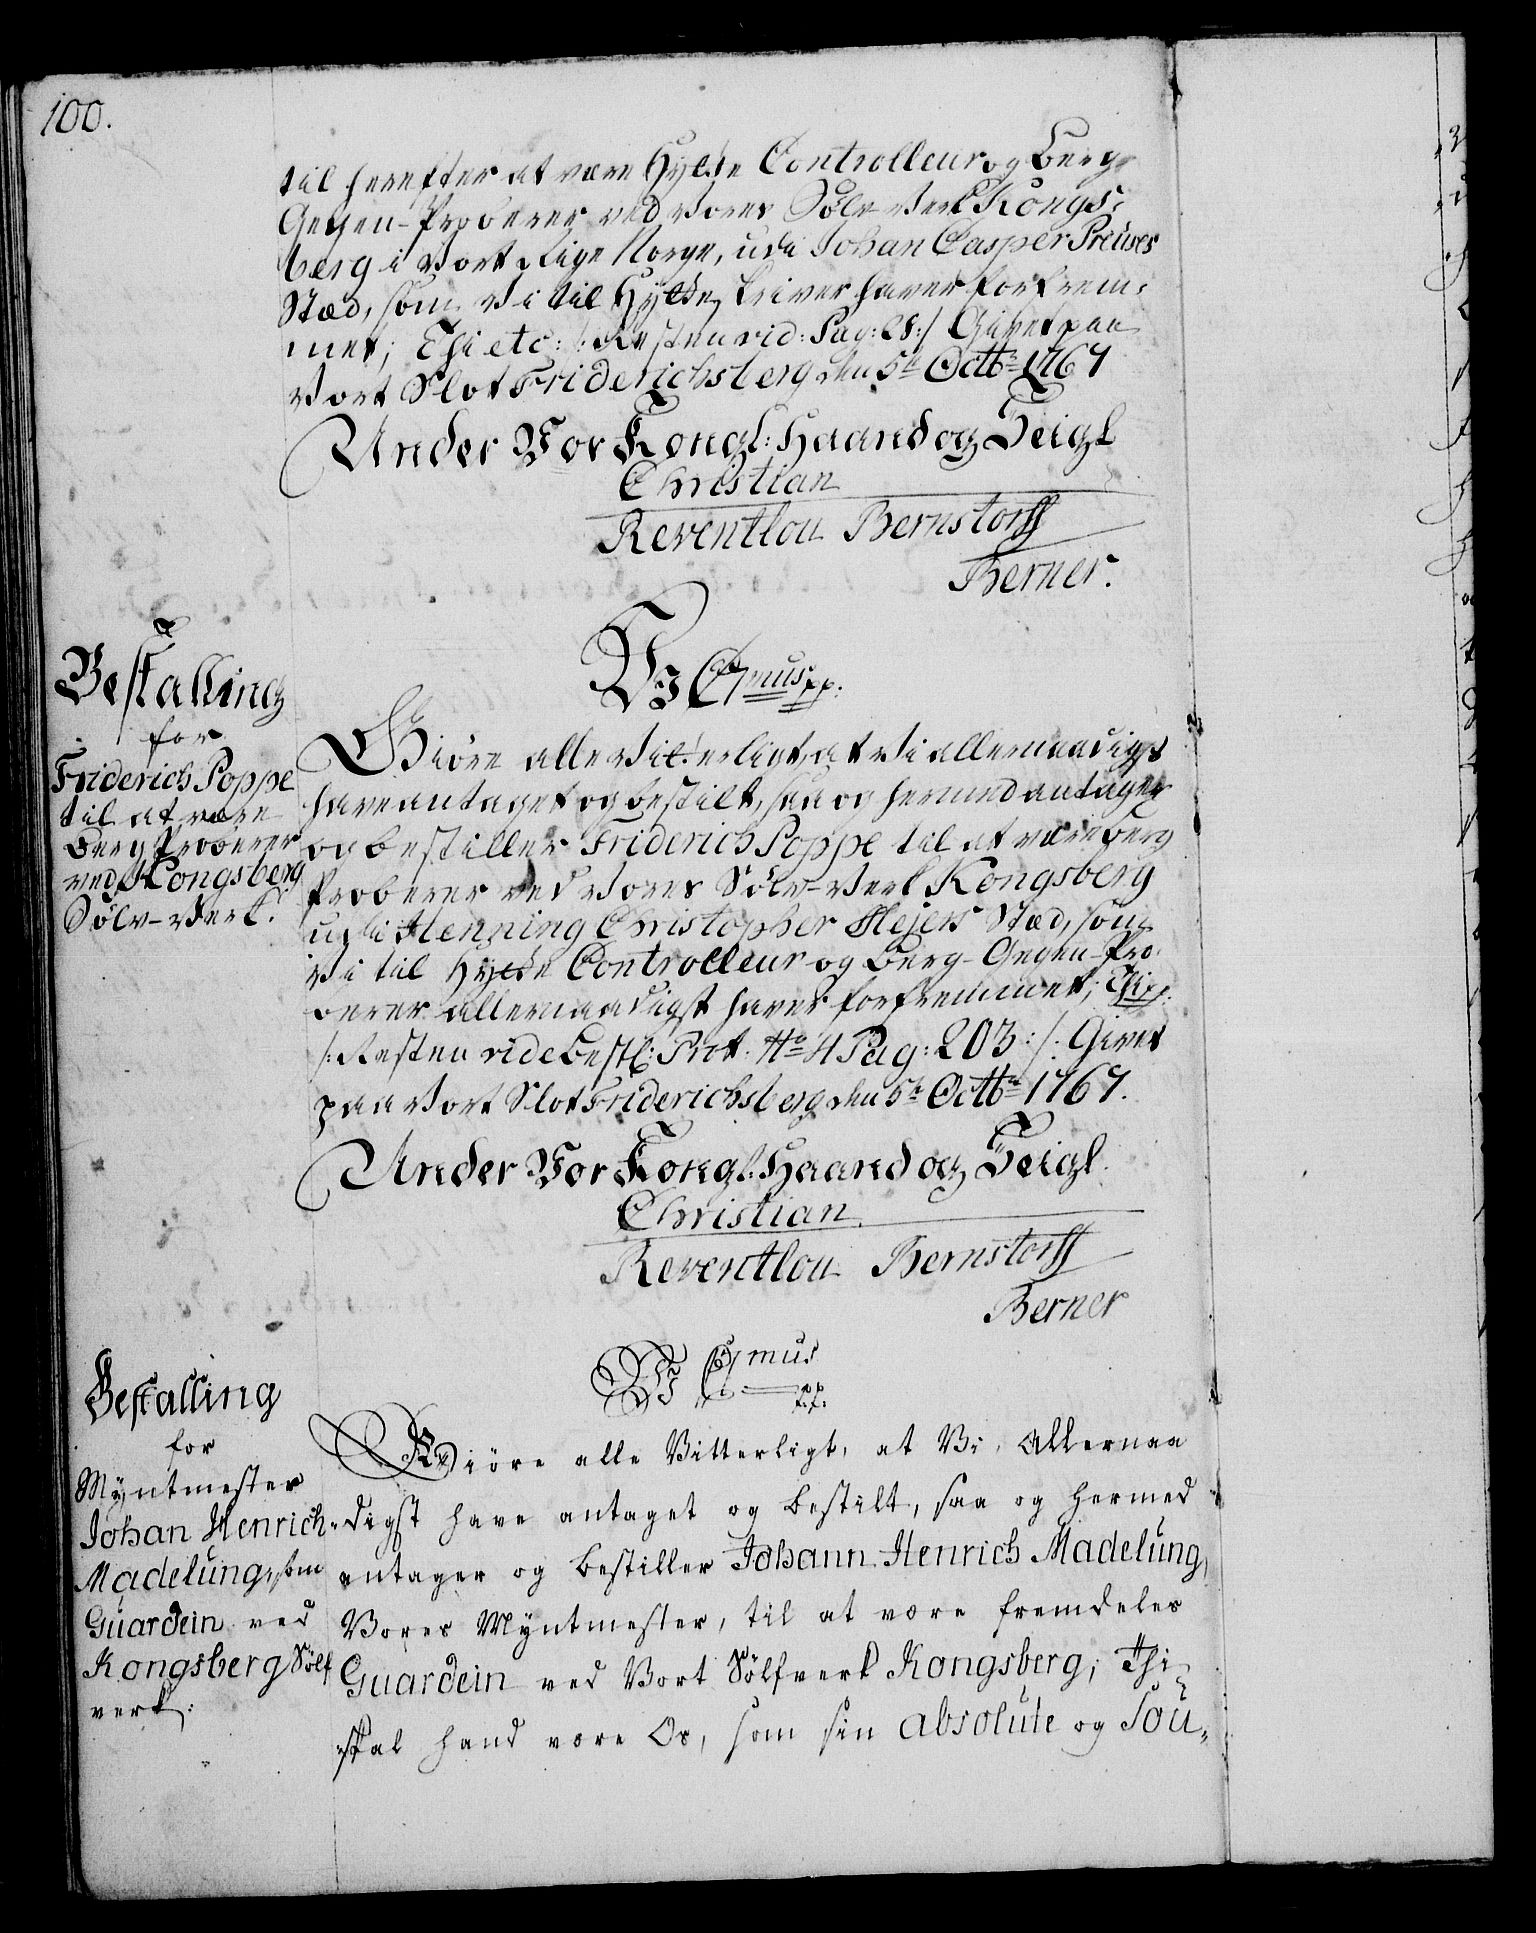 100.
til herefter at være Hytte Controlleur og Berg-
Gegen-Proberer ved Vores Sølv-Verk Kongs-
berg i Vort Rige Norge, udi Johan Casper Preuses
Stæd, som Vi til Hytte Skriver haver forfrem-
met; Thi etc: /: Resten vid: Pag: 28 :/ Givet paa
Vort Slot Friderichsberg den 5te Octbr 1767
Under Vor Kongl: Haand og Zeigl
Christian
Reventlou Bernstorff
Berner.
Bestalling
for
Friderich Poppe
til at være
Berg Proberer
ved Kongsberg
Sølv-Verk.
Vi C7mus pp:
Giøre alle Vitterligt, at Vi allernaadigst
have antaget og bestilt, saa og hermed antager
og bestiller Friderich Poppe til at være Berg
Proberer ved Vores Sølv-Verk Kongsberg
udi Henning Christopher Mejers Stæd, som
Vi til Hytte Controlleur og Berg-Gegen-Pro-
berer allernaadigst haver forfremmet; Thi pp:
/: Resten vide Bestl: Prot: No 4 Pag: 203 :/ Givet
paa Vort Slot Friderichsberg den 5te Octbr 1767.
Under Vor Kongl: Haand og Zeigl.
Christian
Reventlou Bernstorff
Berner
Bestalling
for
Myntmester
Johan Henrich
Madelung, som
Guardein ved
Kongsberg Sølf
verk:
Vi C7mus pp.
Giöre alle Vitterligt, at Vi, Allernaa
-digst have antaget og bestilt, saa og hermed
antager og bestiller Johann Henrich Madelung,
Vores Myntmester, til at være fremdeles
Guardein ved Vort Sölfverk Kongsberg; Thi
skal hand være Os, som sin absolute og Sou-